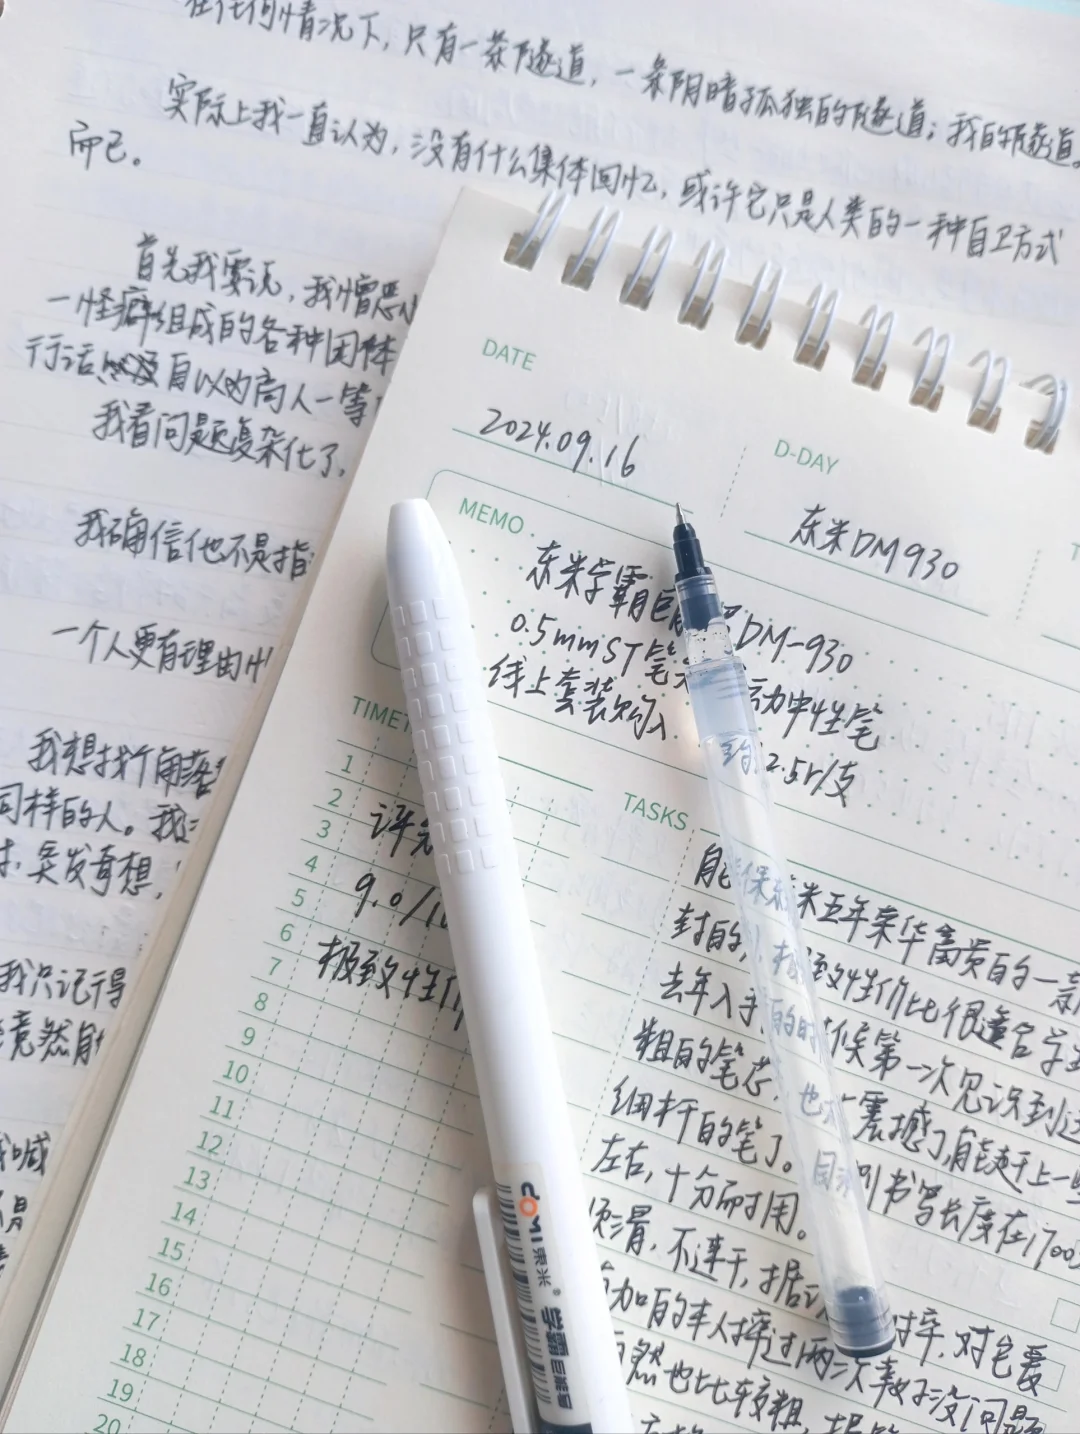 在任何情况下,只有一条隧道,一条阴暗孤独的隧道;我的隧道。
实际上我一直认为,没有什么集体回忆,或许它只是人类的一种自卫方式
而已。
首先我要说,我憎恶
一怪癖组成的各种团体
行话以及自以为高人一等
我看问题复杂化了,
我确信他不是指
一个人更有理由
我想找个角落
同样的人。我
突发奇想,
我只记得
竟然
我喊
DATE
2024.09.16
D-DAY
东米DM930
MEMO
东米学霸 DM-930
0.5mmST笔 动中性笔
线上套装购入 约2.5r/支
TIMET
TASKS
1
2
3
4
5
6
7
8
9
10
11
12
13
14
15
16
17
18
19
20
评分
9.0/10
极致性价
自 保 米五年荣华富贵的一款
封的 极致性价比很适合学生
去年入手的时候第一次见识到这
粗的笔芯,也 震撼了,能赶上一些
细杆的笔了。目测书写长度在1700
左右,十分耐用。
顺滑,不速干,据 耐摔,对它爱
加的本人摔过两三次都没问题
然也比较粗,
DOMI 东米®
学霸 巨能写